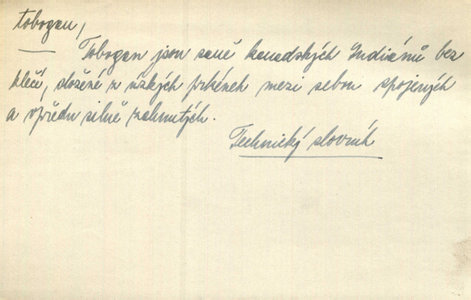 tobogan,
Tobogan jsou saně kanadských Indiánů bez
klečí, složené z úzkých prkének mezi sebou spojených
a vpředu silně zahnutých.
Technický slovník